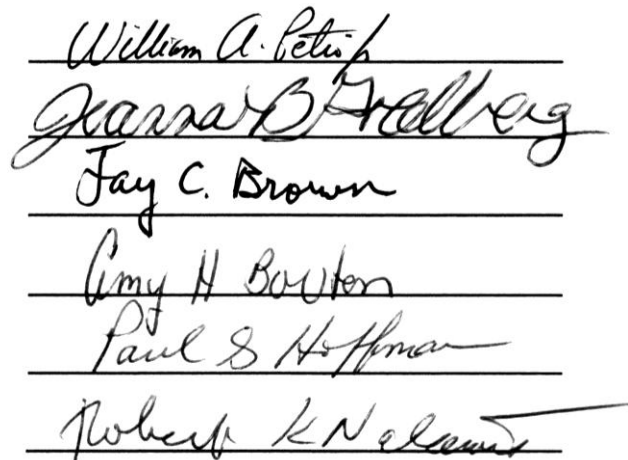 William A. Petri Jr
Joanna B Goldberg
Jay C. Brown
Amy H Bouton
Paul S Hoffman
Robert K